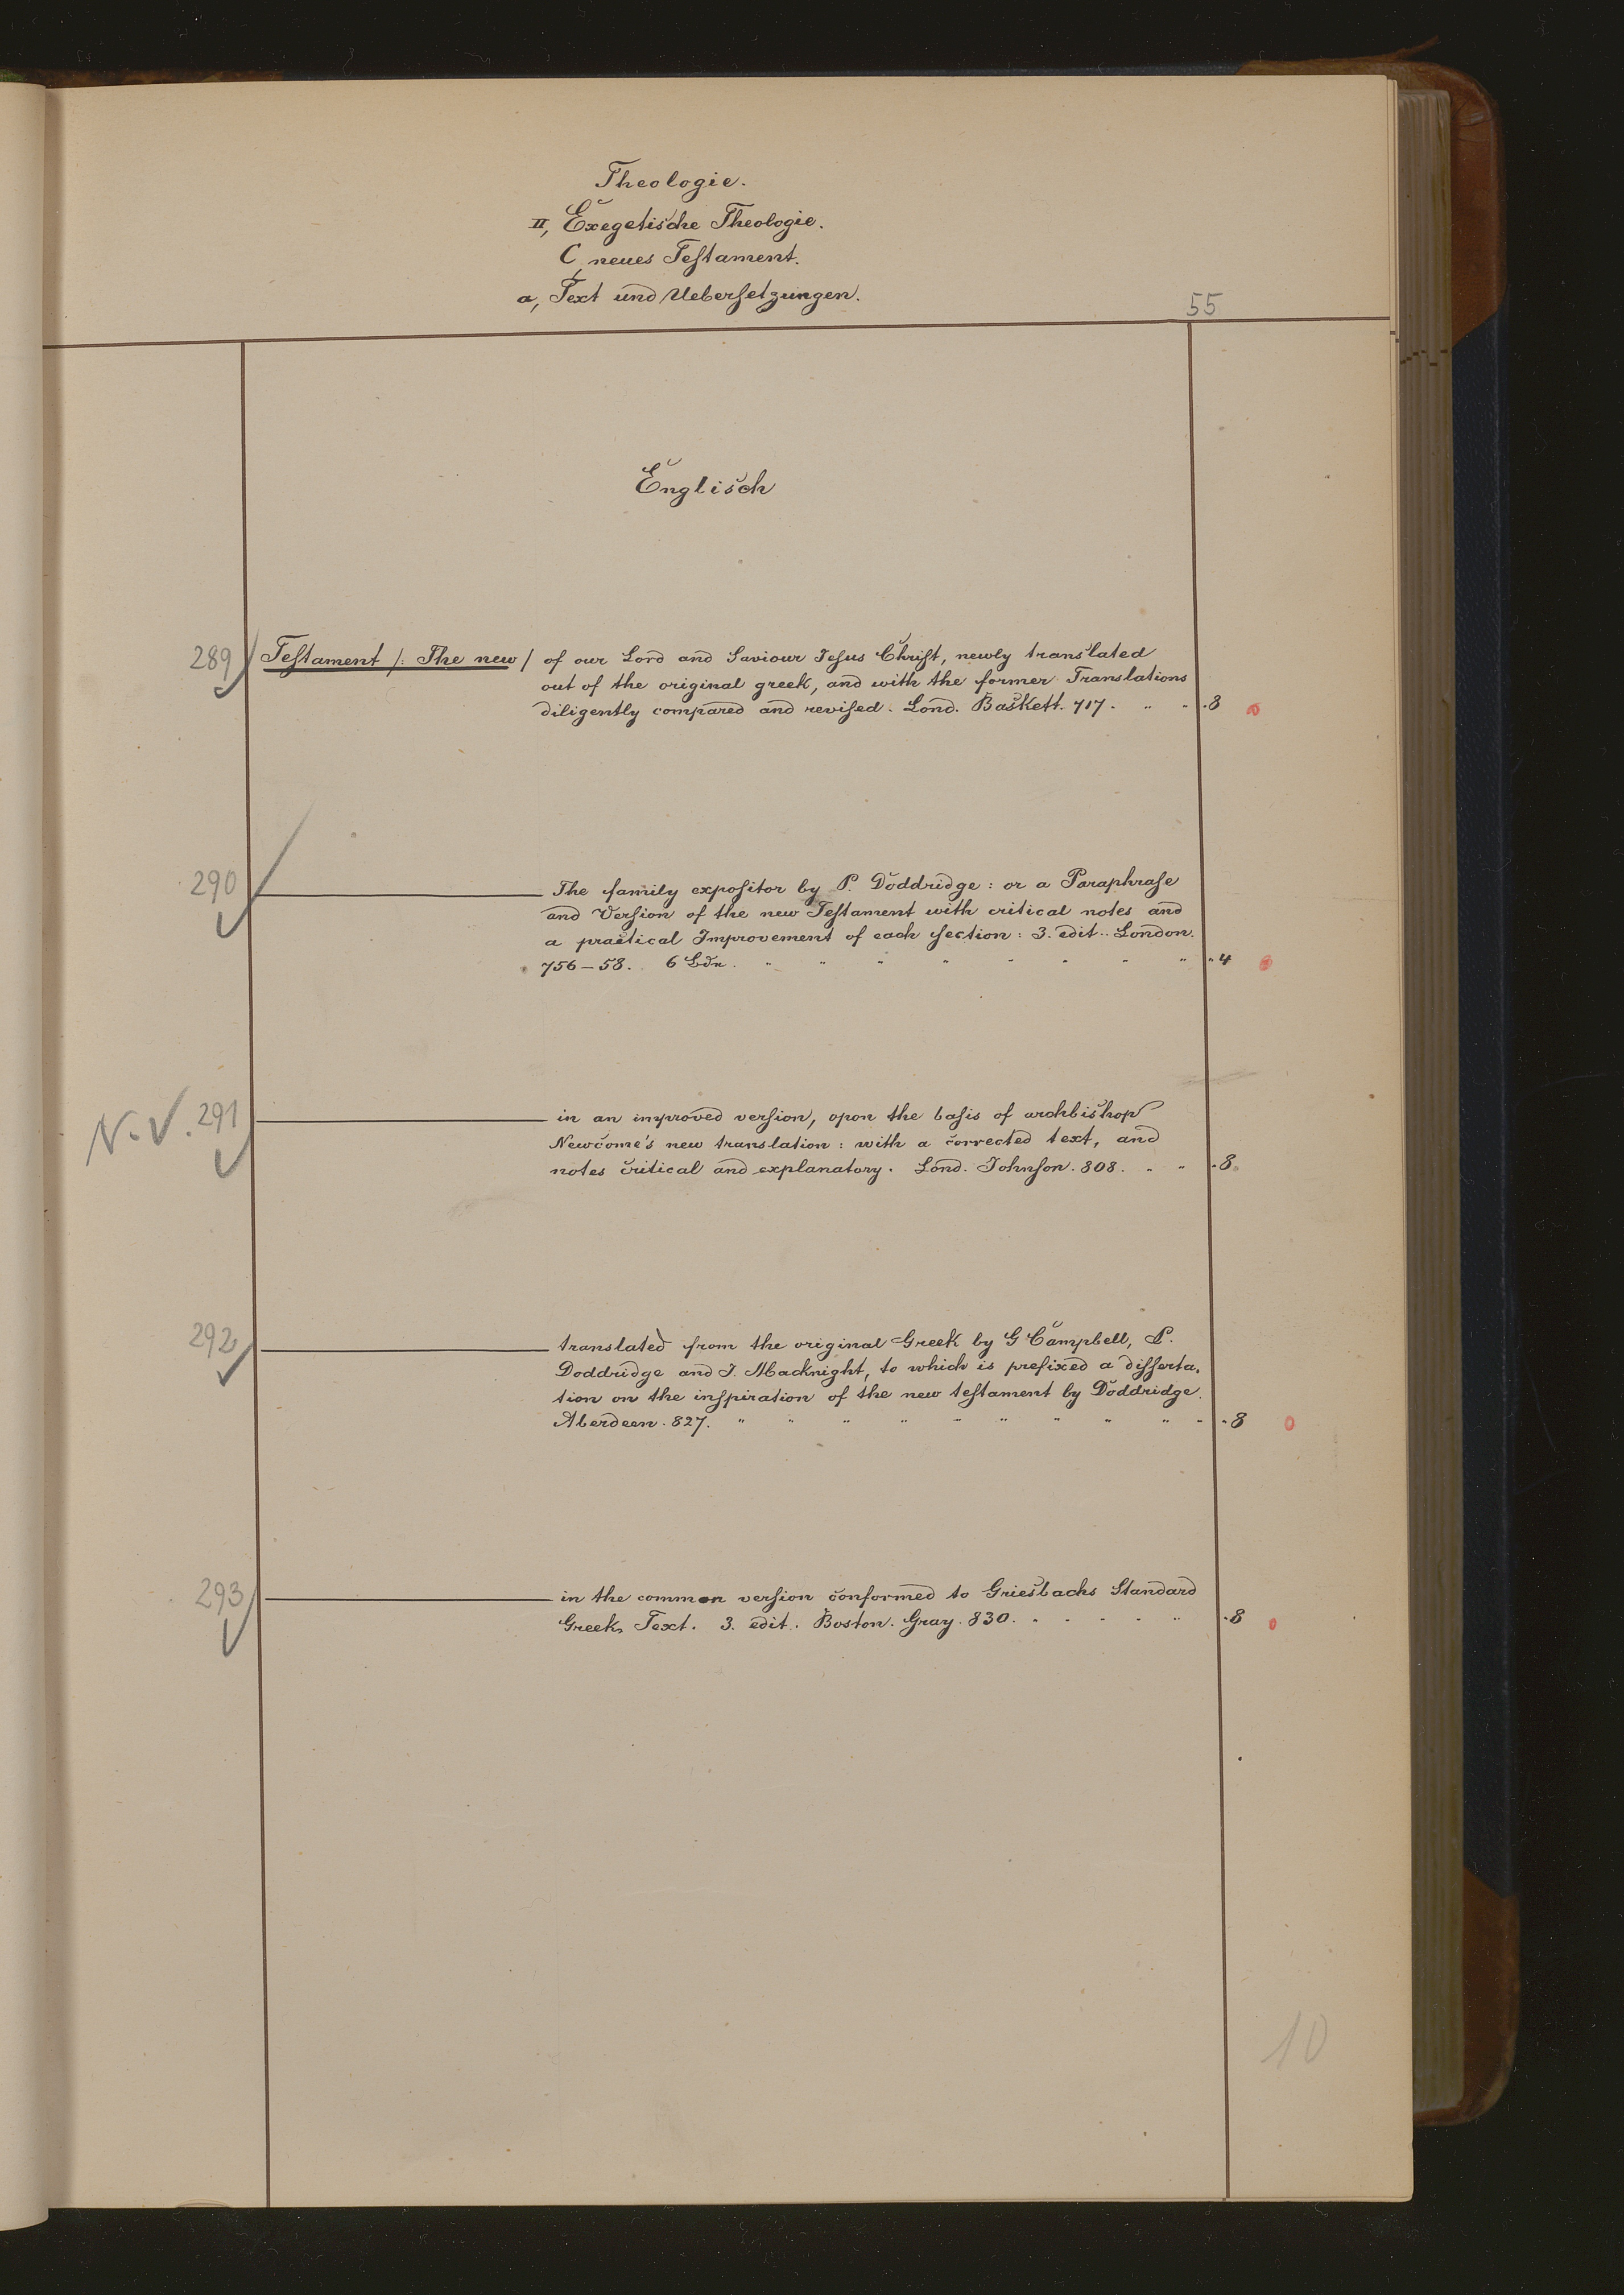 Theologie.
II, Exegetische Theologie.
C, neues Testament.
a, Text und Uebersetzungen.
55
Englisch
289 Testament /: The new / of our Lord and Saviour Jesus Christ, newly translated
out of the original greek, and with the former Translations
diligently compared and revised. Lond. Baskett. 717. " " "8
290 The family expositor by P. Doddridge: or a Paraphrase
and Version of the new Testament with critical notes and
a practical Improvement of each section: 3. edit.. London.
756-58. 6 Bde. " " " " " " " " "4
N.V. 291 in an improved version, opon the basis of archbishop
Newcome's new translation: with a corrected text, and
notes critical and explanatory. Lond. Johnson. 808. " " "8.
292 translated from the original Greek by G Campbell, P.
Doddridge and J. Macknight, to which is prefixed a disserta-
tion on the inspiration of the new testament by Doddridge.
Aberdeen. 827. " " " " " " " " " " "8
293 in the common version conformed to Griesbachs Standard
Greek Text. 3. edit. Boston. Gray. 830. " " " " " "8
10